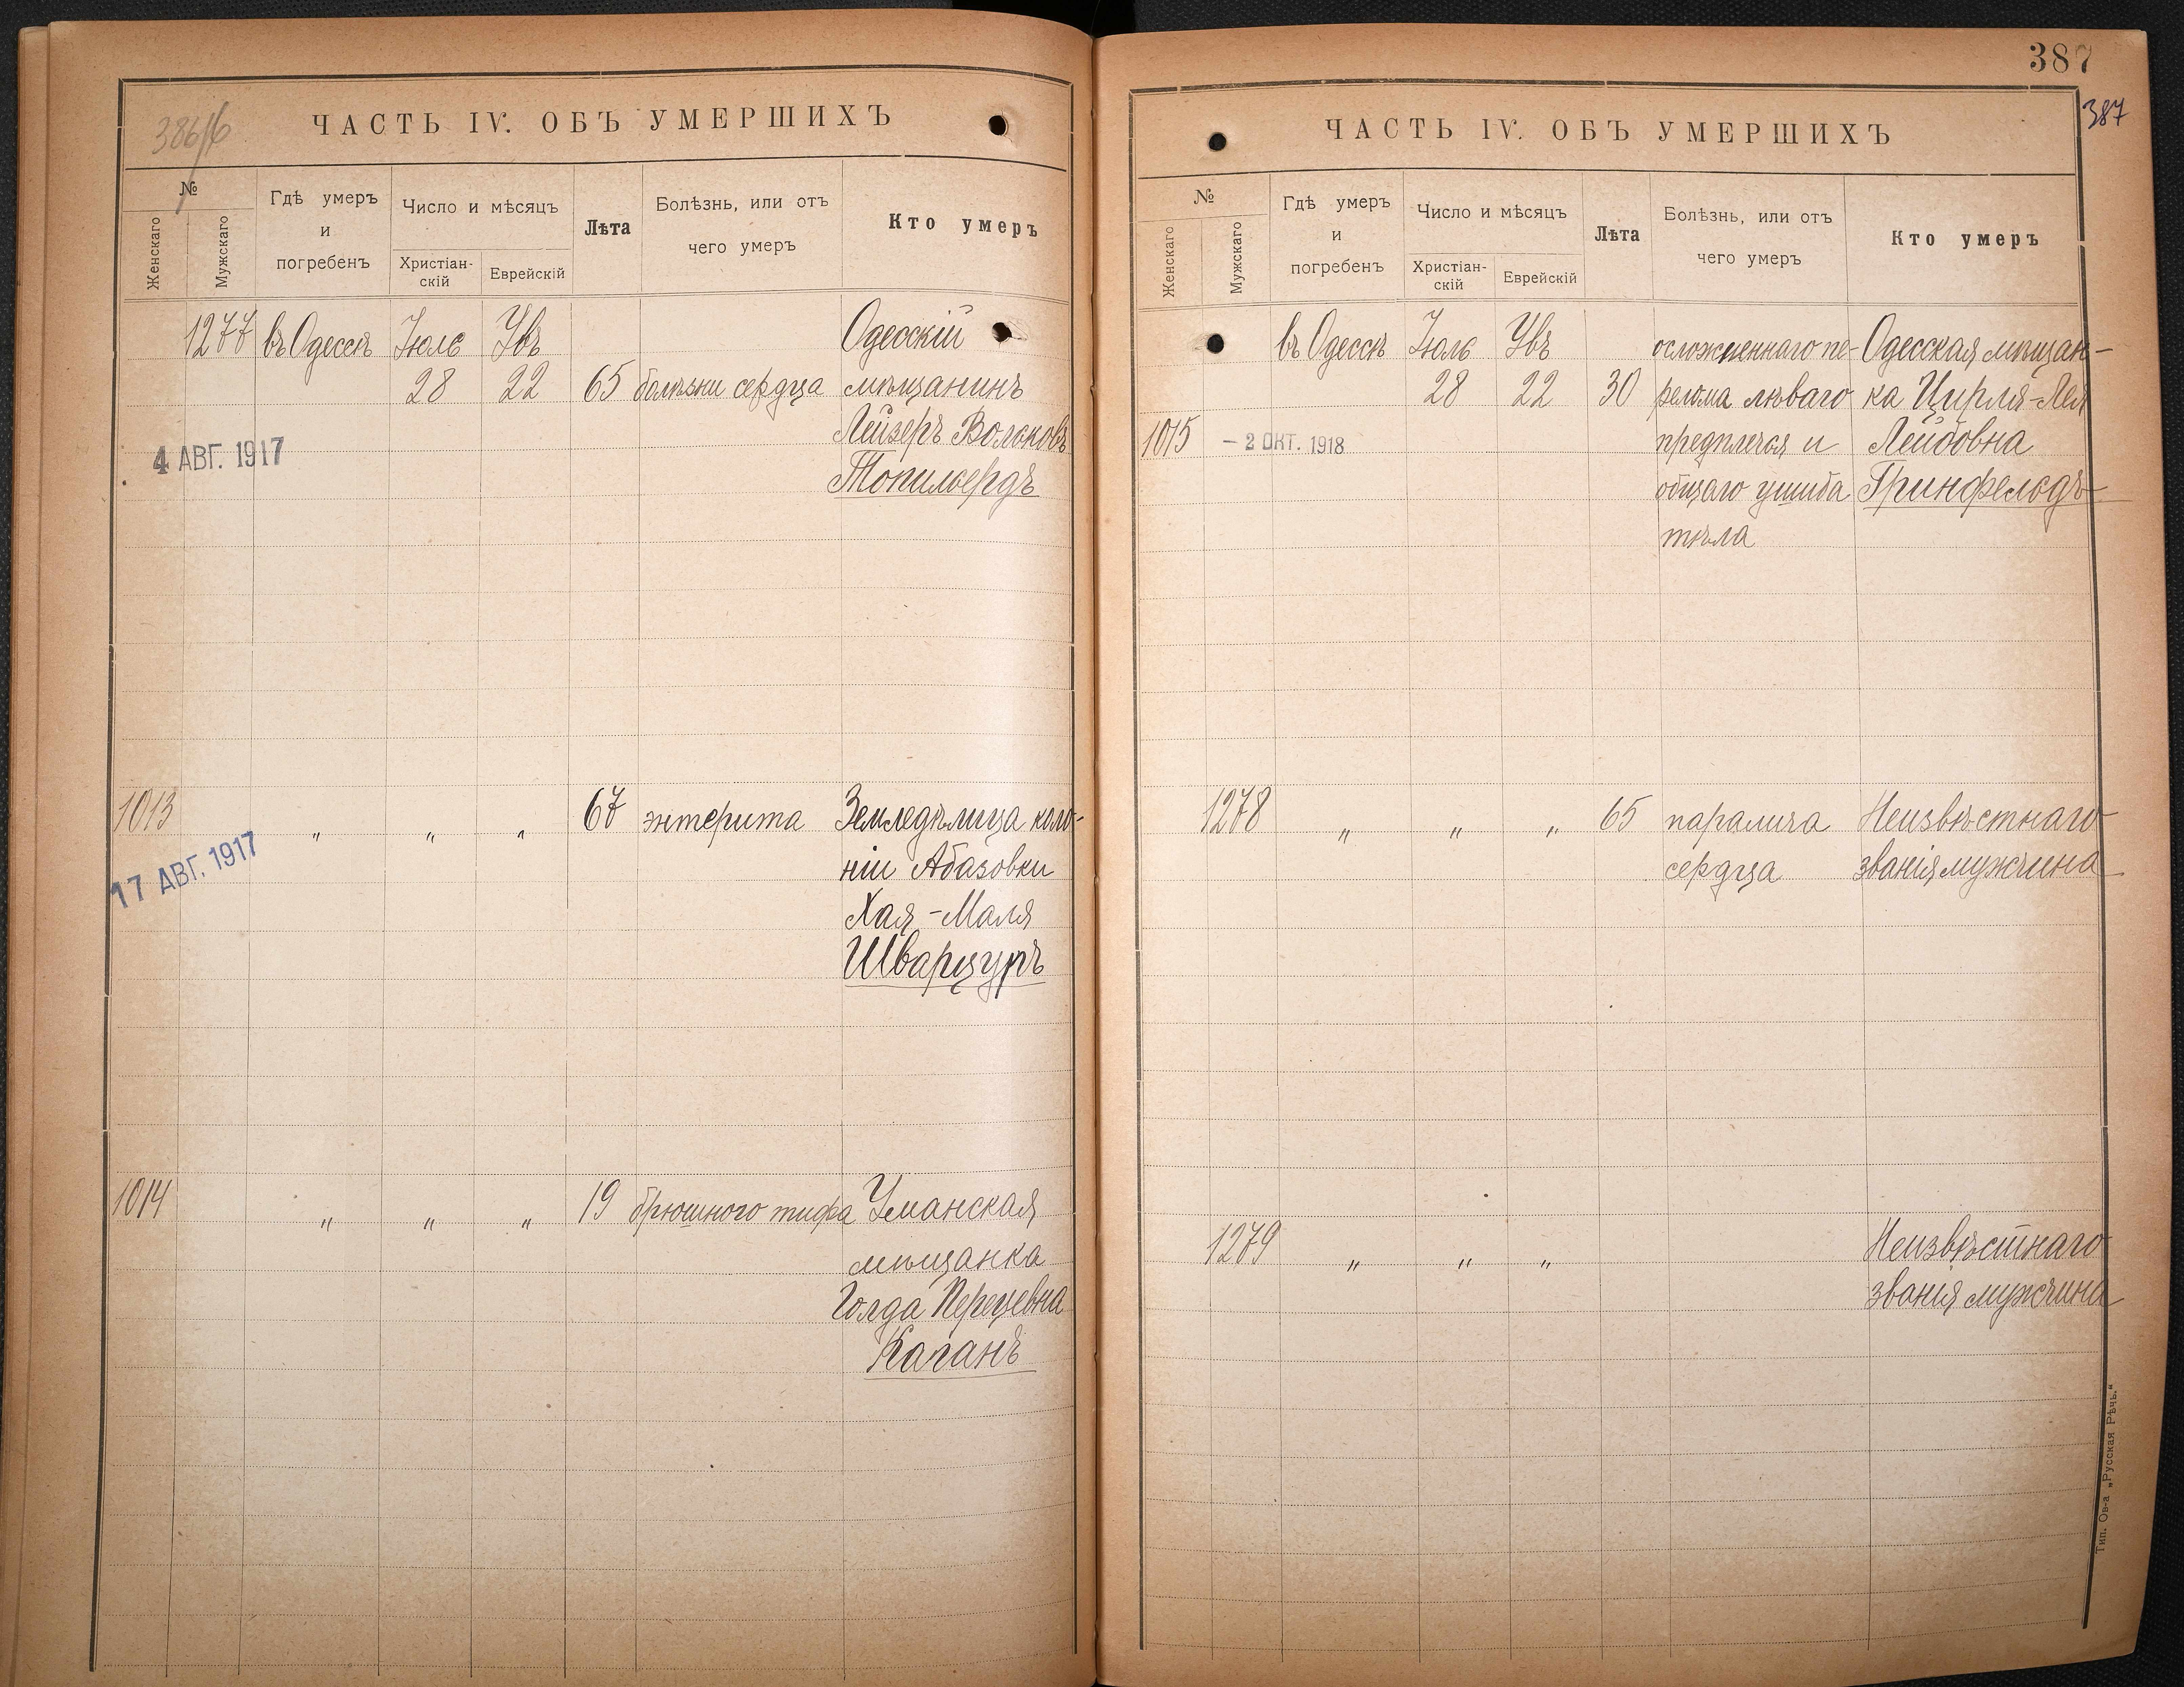 386/б
ЧАСТЬ IV. ОБЪ УМЕРШИХЪ
№
Женскаго
Мужскаго
Гдѣ умеръ
и
погребенъ
Число и мѣсяцъ
Христіан-
скій
Еврейскій
Лѣта
Болѣзнь, или отъ
чего умеръ
Кто умеръ
1277 въ Одессѣ Іюль Увъ Одесскій
28 22 65 болѣзни сердца мѣщанинъ
Лейзеръ Вольковъ
4 АВГ. 1917
Топильбердъ
1013 " " " 67 энтерита Земледѣлица коло-
17 АВГ. 1917
ніи Абазовки
Хая-Маля
Шварцуръ
1014 " " " 19 брюшного тифа Уманская
мѣщанка
Голда Перецевна
Каганъ
387
387
ЧАСТЬ IV. ОБЪ УМЕРШИХЪ
№
Женскаго
Мужскаго
Гдѣ умеръ
и
погребенъ
Число и мѣсяцъ
Христіан-
скій
Еврейскій
Лѣта
Болѣзнь, или отъ
чего умеръ
Кто умеръ
въ Одессѣ Іюль Увъ осложненнаго пе- Одесская мѣщан-
28 22 30 релома лѣваго ка Цирля-Лея
1015 - 2 ОКТ. 1918 предплечья и Лейбовна
общаго ушиба Гринфельдъ
тѣла
1278 " " " 65 паралича Неизвѣстнаго
сердца званія мужчина
1279 " " " Неизвѣстнаго
званія мужчина
Тип. Ов-а „Русская Рѣчь.“